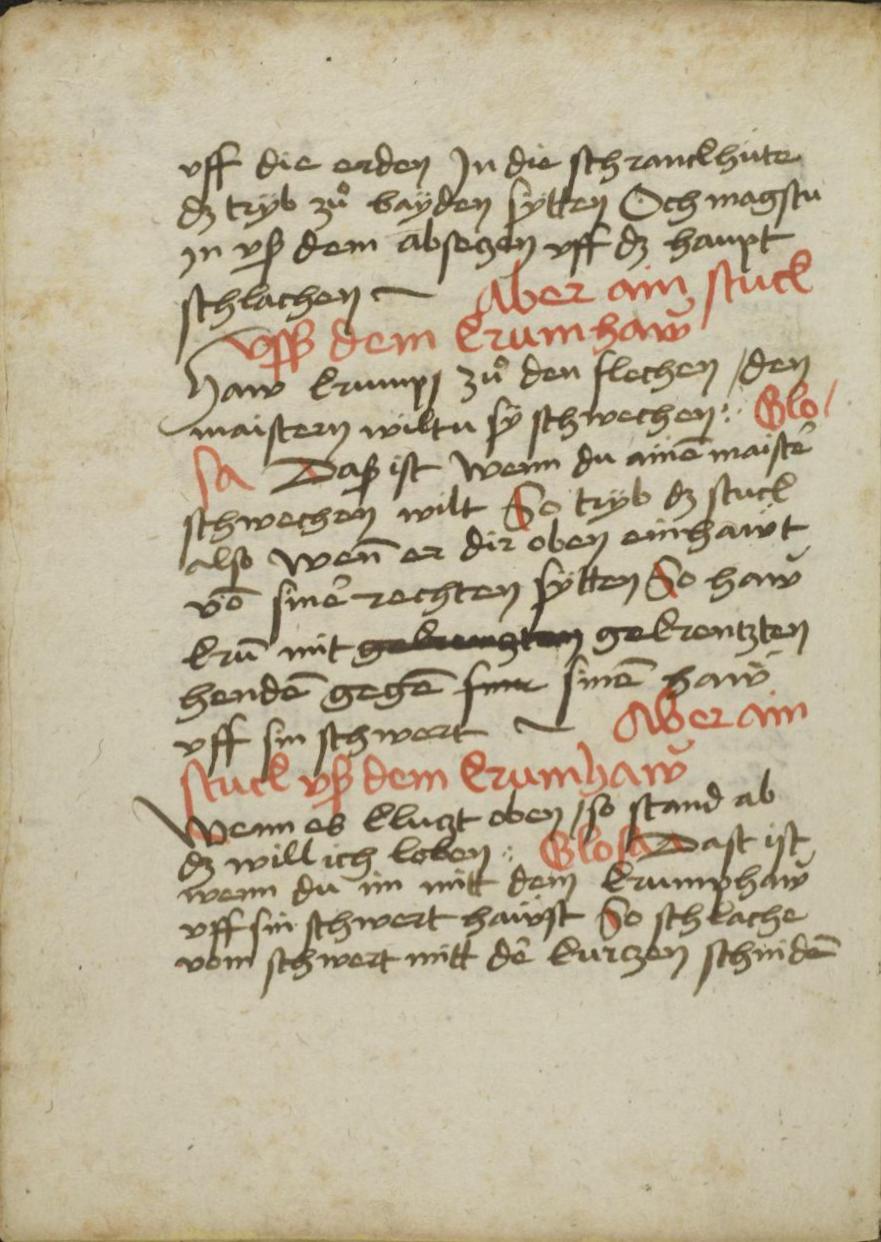 vff die erden Jn die schranckhüte
dz tryb zuͦ bayden sytten Och magstu
jn vß dem absetzen vff dz haupt
schlachen ~ Aber ain stuck
vß dem krumhaẃ
Haw krump zuͦ den flechen / den
maistern wiltu sy schwechen :· Glo/
sa Daß ist wenn du ainē maiste᷑
schwechen wilt So tryb dz stuck
also wen̄ er dir oben einhawt
vō sine᷑ rechten sytten So haw̃
krū mit gekrentzten
hendē gegē sinē haw̃
vff sin schwert ~ Aber ain
stuck vß dem krumhaw̃
Wenn es klutzt oben / so stand ab
dz will ich loben :· Glosa Dast ist
wenn du im mitt dem krumphaw̃
vff sin schwert hawst So schlache
vom schwert mitt de᷑ kurtzen schnidē